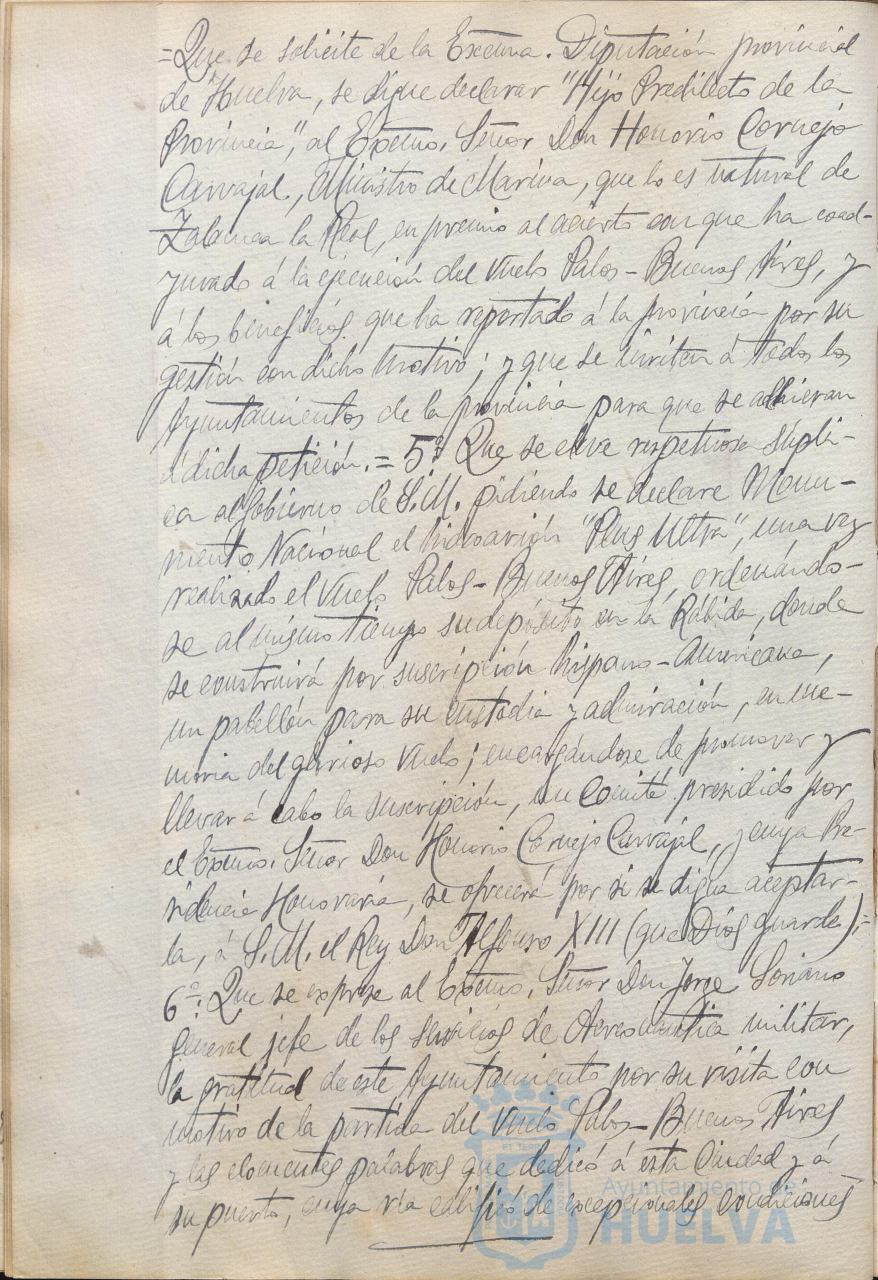 =Que se solicite de la Excma. Diputación provincial
de Huelva, se digne declarar "Hijo Predilecto de la
Provincia", al Excmo. Señor Don Honorio Cornejo
Carvajal, Ministro de Marina, que lo es natural de
Zalamea la Real, en premio al acierto con que ha coad-
yuvado á la ejecución del vuelo Palos-Buenos Aires, y
á los beneficios que ha reportado á la provincia por su
gestión con dicho motivo; y que se inviten á todos los
Ayuntamientos de la provincia para que se adhieran
á dicha petición.= 5º Que se eleve respetuosa súpli-
ca al Gobierno de S.M. pidiendo se declare Monu-
mento Nacional el hidroavión "Plus Ultra", una vez
realizado el vuelo Palos-Buenos Aires, ordenándo-
se al mismo tiempo su depósito en la Rábida, donde
se construirá por suscripción hispano-Américana,
un pabellón para su custodia y admiración, en me-
moria del glorioso vuelo; encargándose de promover y
llevar á cabo la suscripción, un Comité presidido por
el Excmo. Señor Don Honorio Cornejo Carvajal, y cuya Pre-
sidencia Honoraria, se ofrecerá por si se digna aceptar-
la, á S.M. el Rey Don Alfonso XIII (que Dios guarde);=
6º: Que se exprese al Excmo. Señor Don Jorge Soriano
general jefe de los servicios de Aeronáutica militar,
la gratitud de este Ayuntamiento por su visita con
motivo de la partida del vuelo Palos-Buenos Aires
y las elocuentes palabras que dedicó á esta Ciudad y á
su puerto, cuya ría calificó de excepcionales condiciones
Ayuntamiento de
HUELVA